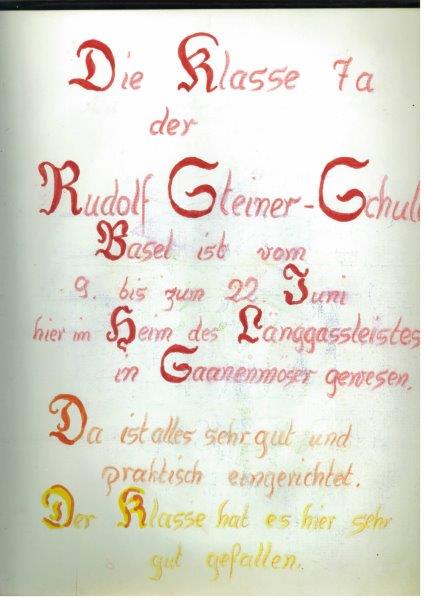 Die Klasse 7a
der
Rudolf Steiner-Schule
Basel ist vom
9. bis zum 22. Juni
hier im Heim des Länggassleistes
in Saanenmöser gewesen.
Da ist alles sehr gut und
praktisch eingerichtet.
Der Klasse hat es hier sehr
gut gefallen.